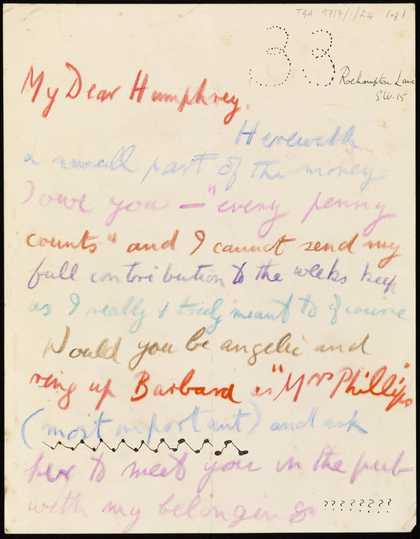 TGA 9717/1/24 (4)
33
Roehampton Lane
SW.15
My Dear Humphrey.
Herewith
a small part of the money
I owe you — "every penny
counts" and I cannot send my
full contribution to the weeks keep
as I really & truly meant to of course
Would you be angelic and
ring up Barbara as "Mrs Phillips"
(most important) and ask
her to meet you in the pub
with my belongings ????????